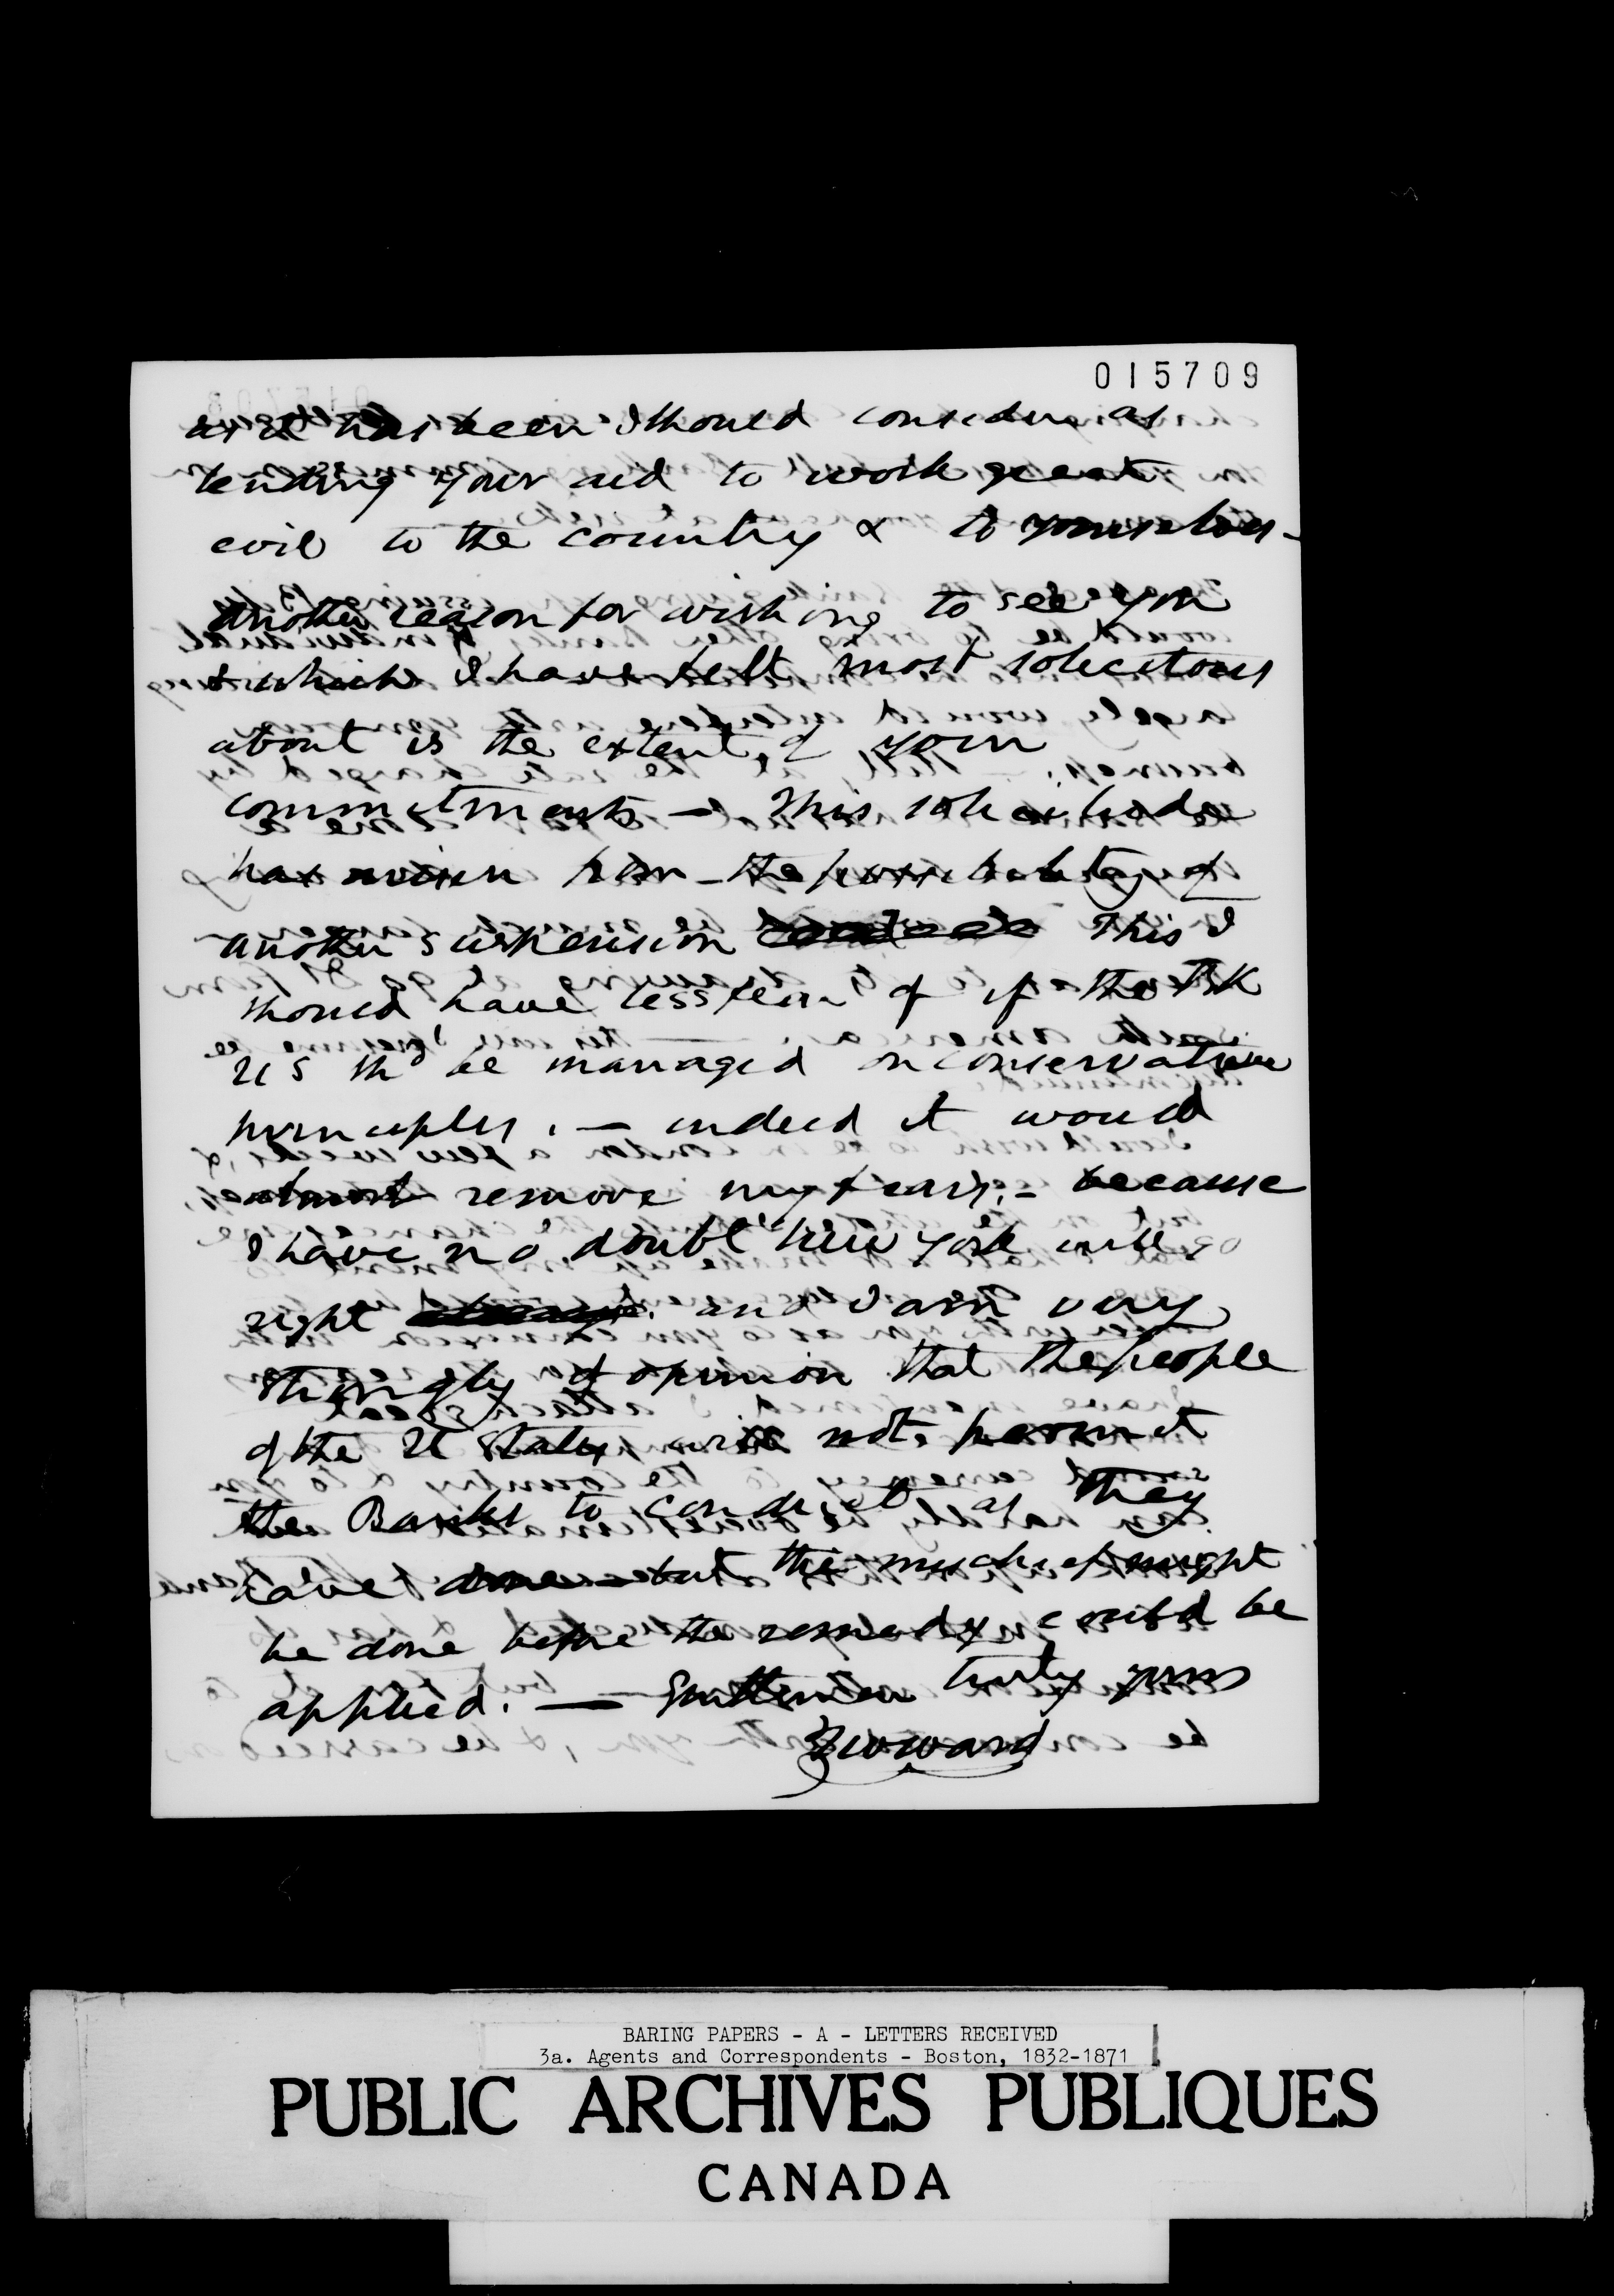 015709
as it has been I should consider as
lending your aid to work great
evil to the country & to yourselves -
another reason for wishing to see you
& which I have felt most solicitous
about is the extent of your
commitments — This solicitude
has arisen from the possibility of
another suspension This I
should have less fear of if the Bk
US shd be managed on conservative
principles. — indeed it would
almost remove my fears. - because
I have no doubt New York will go
right and I am very
strongly of opinion that the people
of the U States will not permit
the Banks to conduct as they
have done - but the mischief might
be done before the remedy could be
applied. — Gentlemen truly yours
TWward
BARING PAPERS - A - LETTERS RECEIVED
3a. Agents and Correspondents - Boston, 1832-1871
PUBLIC ARCHIVES PUBLIQUES
CANADA